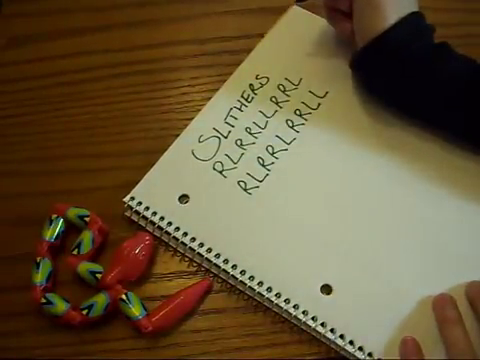 SLITHERS
RLRRLLRRL
RLRRLRRLL